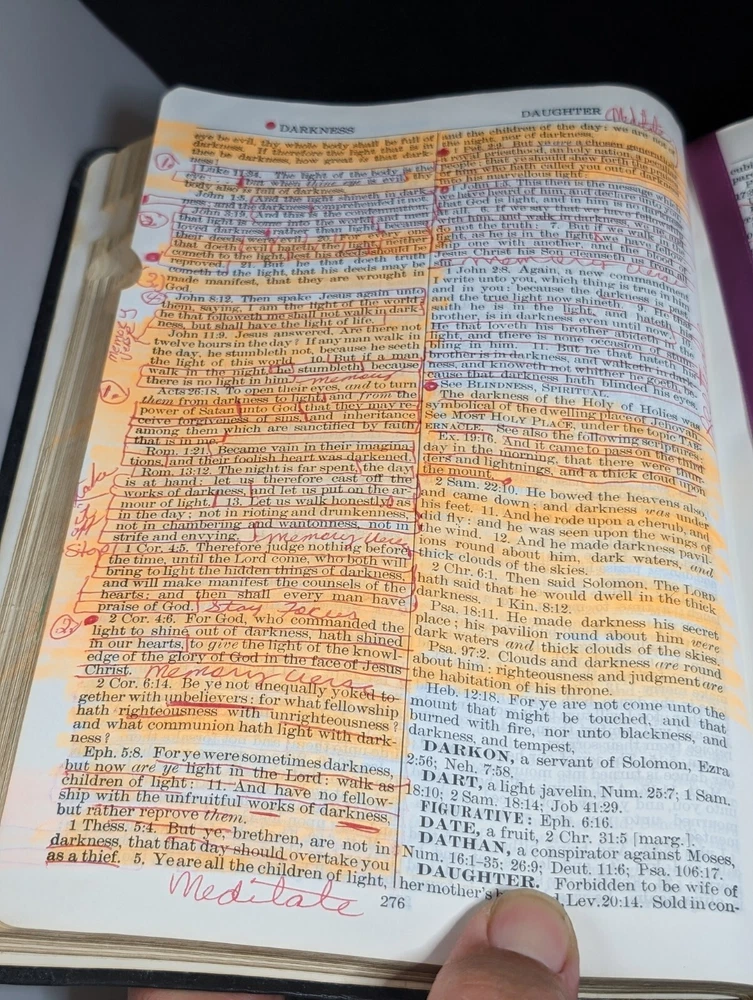 DARKNESS
DAUGHTER Meditate
eye be evil, thy whole body shall be full of
darkness. If therefore the light that is in
thee be darkness, how great is that dark-
ness!
1 Luke 11:34. The light of the body is the
eye: but when thine eye is evil thy
body also is full of darkness.
John 1:5. And the light shineth in dark-
2 ness; and the darkness comprehended it not.
John 3:19. And this is the condemnation,
that light is come into the world, and men
loved darkness rather than light, because
their deeds were evil. 20. For every one
that doeth evil hateth the light, neither
cometh to the light, lest his deeds should be
reproved. 21. But he that doeth truth
3 cometh to the light, that his deeds may be
made manifest, that they are wrought in
God.
4 John 8:12. Then spake Jesus again unto
them, saying, I am the light of the world:
he that followeth me shall not walk in dark-
ness, but shall have the light of life.
John 11:9. Jesus answered, Are there not
twelve hours in the day? If any man walk in
the day, he stumbleth not, because he seeth
the light of this world. 10. But if a man
walk in the night, he stumbleth, because
there is no light in him. memory
Acts 26:18. To open their eyes, and to turn
them from darkness to light, and from the
power of Satan unto God, that they may re-
ceive forgiveness of sins, and inheritance
among them which are sanctified by faith
that is in me.
Rom. 1:21. Became vain in their imagina-
tions, and their foolish heart was darkened.
Rom. 13:12. The night is far spent, the day
is at hand: let us therefore cast off the
works of darkness, and let us put on the ar-
mour of light. 13. Let us walk honestly, as
in the day; not in rioting and drunkenness,
not in chambering and wantonness, not in
strife and envying. Memory Vers
Stop 1 Cor. 4:5. Therefore judge nothing before
the time, until the Lord come, who both will
bring to light the hidden things of darkness,
and will make manifest the counsels of the
hearts: and then shall every man have
praise of God. Stay Focus
2 2 Cor. 4:6. For God, who commanded the
light to shine out of darkness, hath shined
in our hearts, to give the light of the knowl-
edge of the glory of God in the face of Jesus
Christ. Memory Vers
2 Cor. 6:14. Be ye not unequally yoked to-
gether with unbelievers: for what fellowship
hath righteousness with unrighteousness?
and what communion hath light with dark-
ness?
Eph. 5:8. For ye were sometimes darkness,
but now are ye light in the Lord: walk as
children of light: 11. And have no fellow-
ship with the unfruitful works of darkness,
but rather reprove them.
1 Thess. 5:4. But ye, brethren, are not in
darkness, that that day should overtake you
as a thief. 5. Ye are all the children of light,
Meditate
276
and the children of the day: we are not of
the night, nor of darkness.
1 Pet. 2:9. But ye are a chosen generation,
a royal priesthood, an holy nation, a peculiar
people; that ye should shew forth the praises
of him who hath called you out of darkness
into his marvellous light:
1 John 1:5. This then is the message which
we have heard of him, and declare unto you,
that God is light, and in him is no darkness
at all. 6. If we say that we have fellowship
with him, and walk in darkness, we lie, and
do not the truth: 7. But if we walk in the
light, as he is in the light, we have fellow-
ship one with another, and the blood of
Jesus cleanseth us from all
memory Vers
1 John 2:8. Again, a new commandment
I write unto you, which thing is true in him
and in you: because the darkness is past,
and the true light now shineth. 9. He that
saith he is in the light, and hateth his
brother, is in darkness even until now. 10.
He that loveth his brother abideth in the
light, and there is none occasion of stum-
bling in him. 11. But he that hateth his
brother is in darkness, and walketh in dark-
ness, and knoweth not whither he goeth, be-
cause that darkness hath blinded his eyes.
See BLINDNESS, SPIRITUAL.
The darkness of the Holy of Holies was
symbolical of the dwelling place of Jehovah.
See MOST HOLY PLACE, under the topic TAB-
ERNACLE. See also the following scriptures:
Ex. 19:16. And it came to pass on the third
day in the morning, that there were thun-
ders and lightnings, and a thick cloud upon
the mount.
2 Sam. 22:10. He bowed the heavens also,
and came down; and darkness was under
his feet. 11. And he rode upon a cherub, and
did fly: and he was seen upon the wings of
the wind. 12. And he made darkness pavil-
ions round about him, dark waters, and
thick clouds of the skies.
2 Chr. 6:1. Then said Solomon, The LORD
hath said that he would dwell in the thick
darkness. 1 Kin. 8:12.
Psa. 18:11. He made darkness his secret
place; his pavilion round about him were
dark waters and thick clouds of the skies.
Psa. 97:2. Clouds and darkness are round
about him: righteousness and judgment are
the habitation of his throne.
Heb. 12:18. For ye are not come unto the
mount that might be touched, and that
burned with fire, nor unto blackness, and
darkness, and tempest,
DARKON, a servant of Solomon, Ezra
2:56; Neh. 7:58.
DART, a light javelin, Num. 25:7; 1 Sam.
18:10; 2 Sam. 18:14; Job 41:29.
FIGURATIVE: Eph. 6:16.
DATE, a fruit, 2 Chr. 31:5 [marg.].
DATHAN, a conspirator against Moses,
Num. 16:1-35; 26:9; Deut. 11:6; Psa. 106:17.
DAUGHTER. Forbidden to be wife of
her mother's Lev. 20:14. Sold in con-